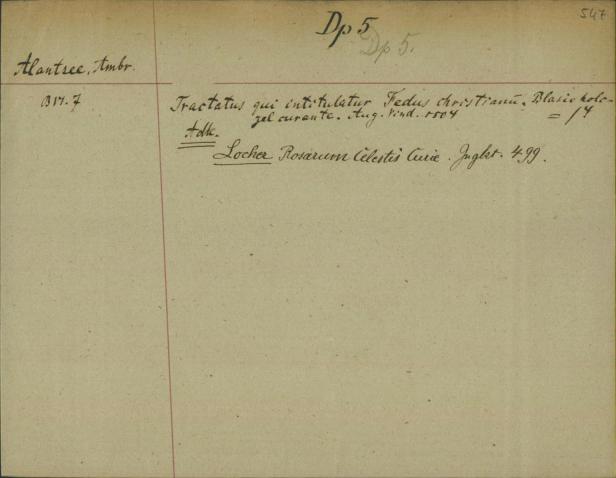 547
Dp 5
Dp 5.
Alantsee, Ambr.
B 17. 7
Tractatus qui intitulatur Fedus christianū. Blasio holc-
zel curante. Aug. Vind. 1504
= / 4
Adk.
Locher Rosarum Celestis Curiæ. Inglst. 499.